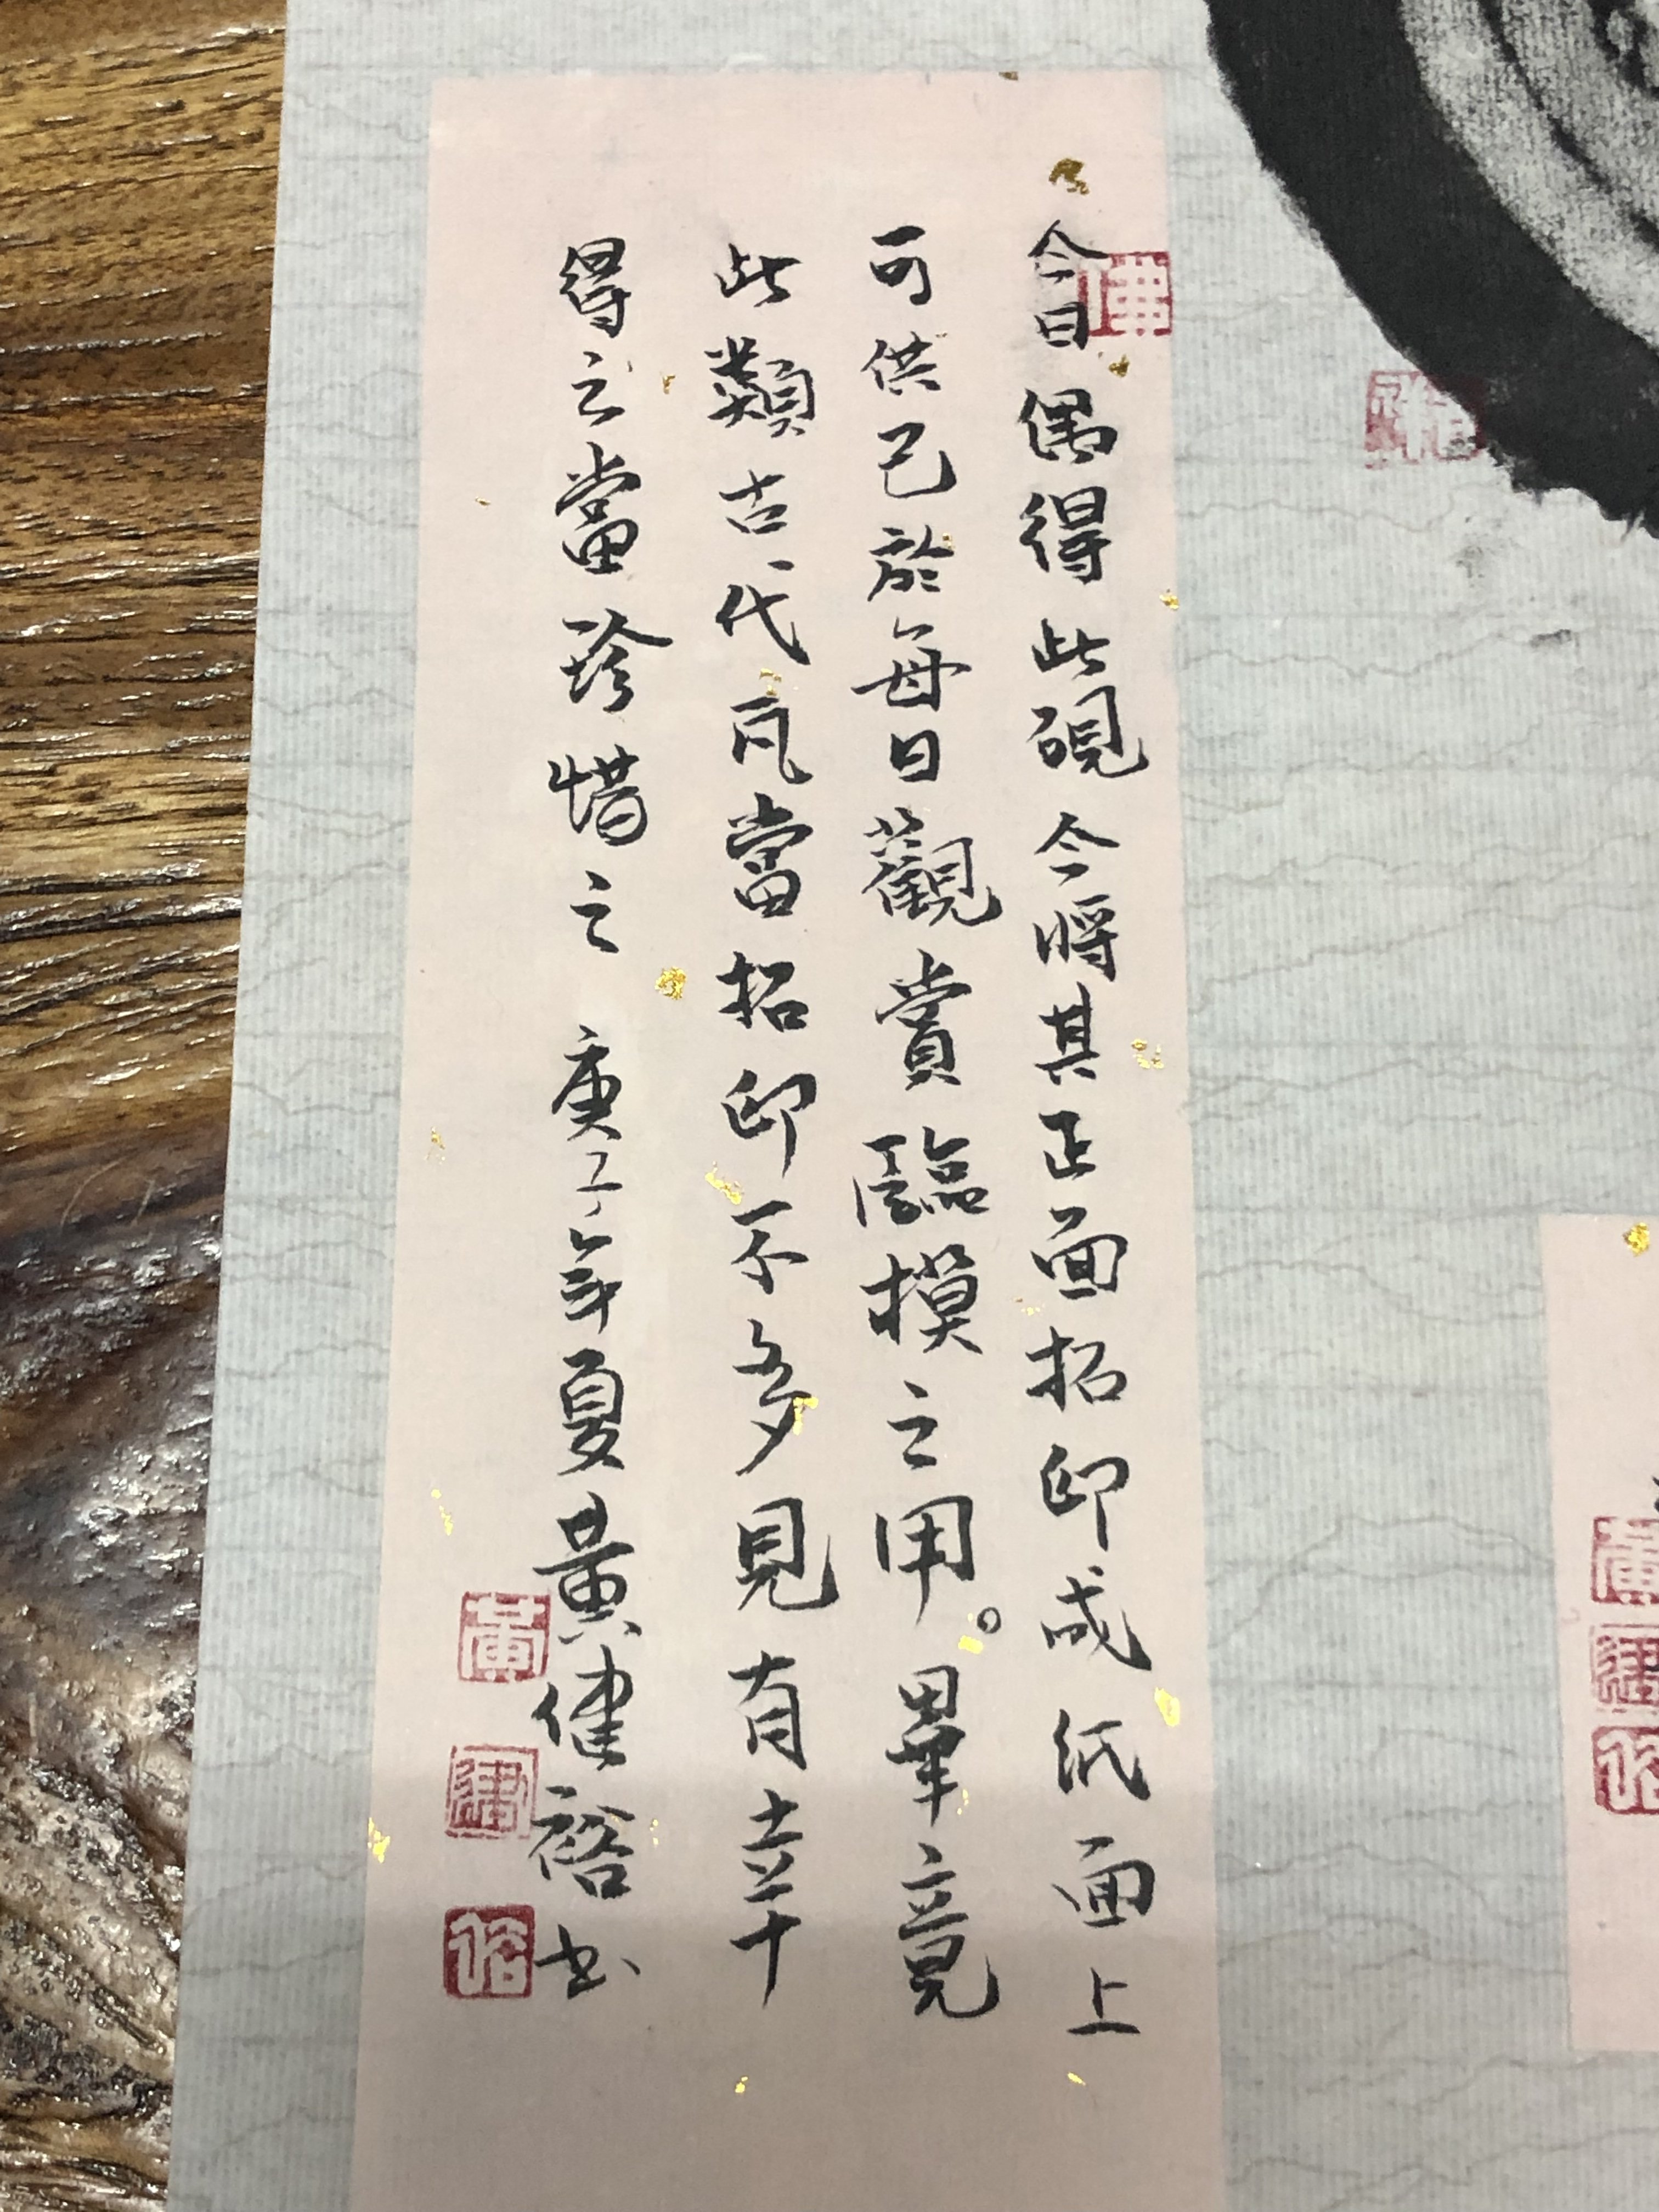 今日偶得此硯今將其正面拓印成紙面上
可供己於每日觀賞臨摸之用。畢竟
此類古代瓦當拓印不多見有幸
得之當珍惜之 庚子年夏黃健裕书
佛
黃
建
裕
黃
建
裕